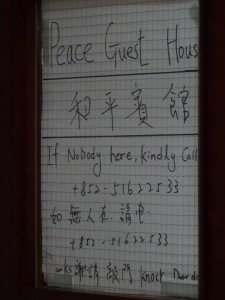 Peace Guest Hous
和平賓館
If Nobody here, kindly Call
+852-51622533
如無人在請电
+852-51622533
請敲門 Knock